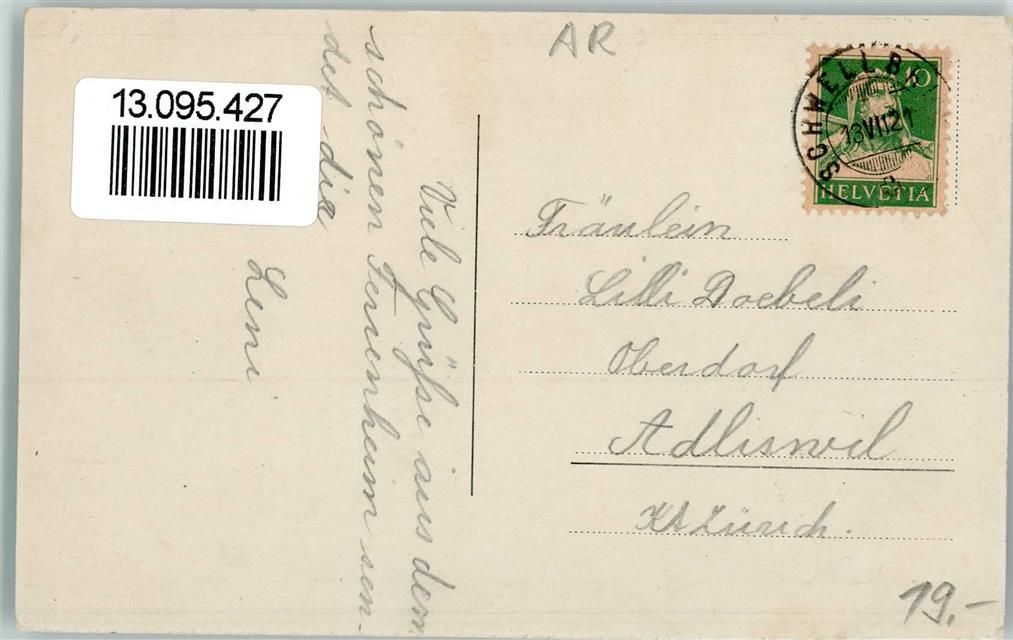 AR
13.095.427
SCHWELLBR
13 VII 21
10
HELVETIA
Viele Grüße aus dem
schönen Ferienheim sen-
det dir
Leni
Fräulein
Lilli Doebeli
Oberdorf
Adliswil
Kt Zürich.
19.-